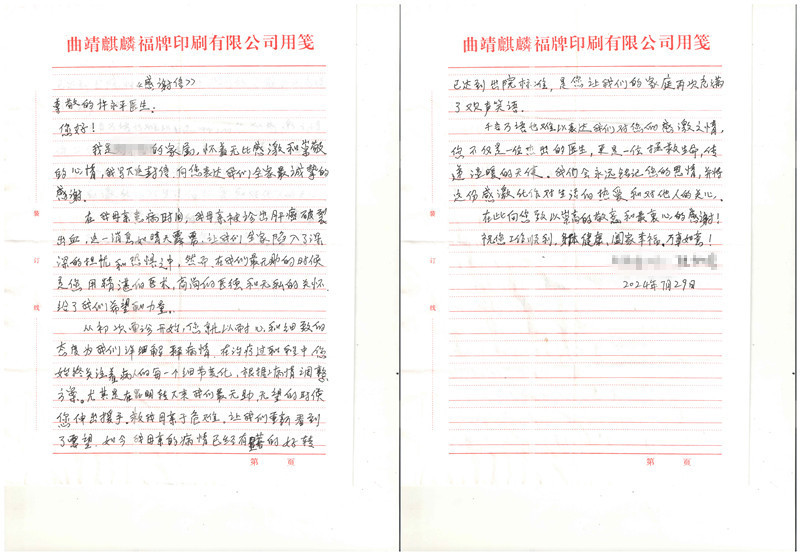 曲靖麒麟福牌印刷有限公司用笺
《感谢信》
尊敬的许永平医生:
您好!
我是 的家属,怀着无比感激和崇敬
的心情,我写下这封信,向您表达我们全家最诚挚的
感谢。
在我母亲患病时间,我母亲被诊出肝癌破裂
出血,这一消息如晴天霹雳,让我们全家陷入了深
深的担忧和恐惧之中,然而在我们最无助的时候
是您用精湛的医术,高尚的医德和无私的关怀
给了我们希望和力量。
从初次面诊开始,您就以耐心和细致的
态度为我们详细解释病情,在治疗过和程中您
始终关注着病人的每一个细节变化,根据病情调整
方案。尤其是在昆明转下来我们最无助无望的时候
您伸出援手,救我母亲于危难,让我们重新看到
了愿望,如今我母亲的病情已经有 的好转
装
订
线
第 页
曲靖麒麟福牌印刷有限公司用笺
已达到出院标准,是您让我们的家庭再次充满
了欢声笑语。
千言万语也难以表达我们对您的感激之情,
您不仅是一位杰出的医生,更是一位拯救生命,传
递温暖的天使。我们会永远铭记您的恩情,并将
这份感激化作对生活的热爱和对他人的关心。
在此向您致以崇高的敬意和最衷心的感谢!
祝您工作顺利,身体健康,阖家幸福,万事如意!
2024年7月29日
装
订
线
第 页